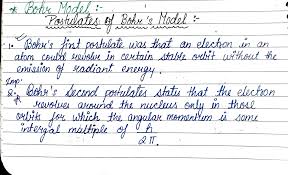 * Bohr Model :-
Postulates of Bohr's Model :-
1. Bohr's first postulate was that an electron in an
atom could revolve in certain stable orbit without the
emission of radiant energy.
Imp.
2. Bohr's Second postulates states that the electron
revolves around the nucleus only in those
orbits for which the angular momentum is some
intergal multiple of h
2π.